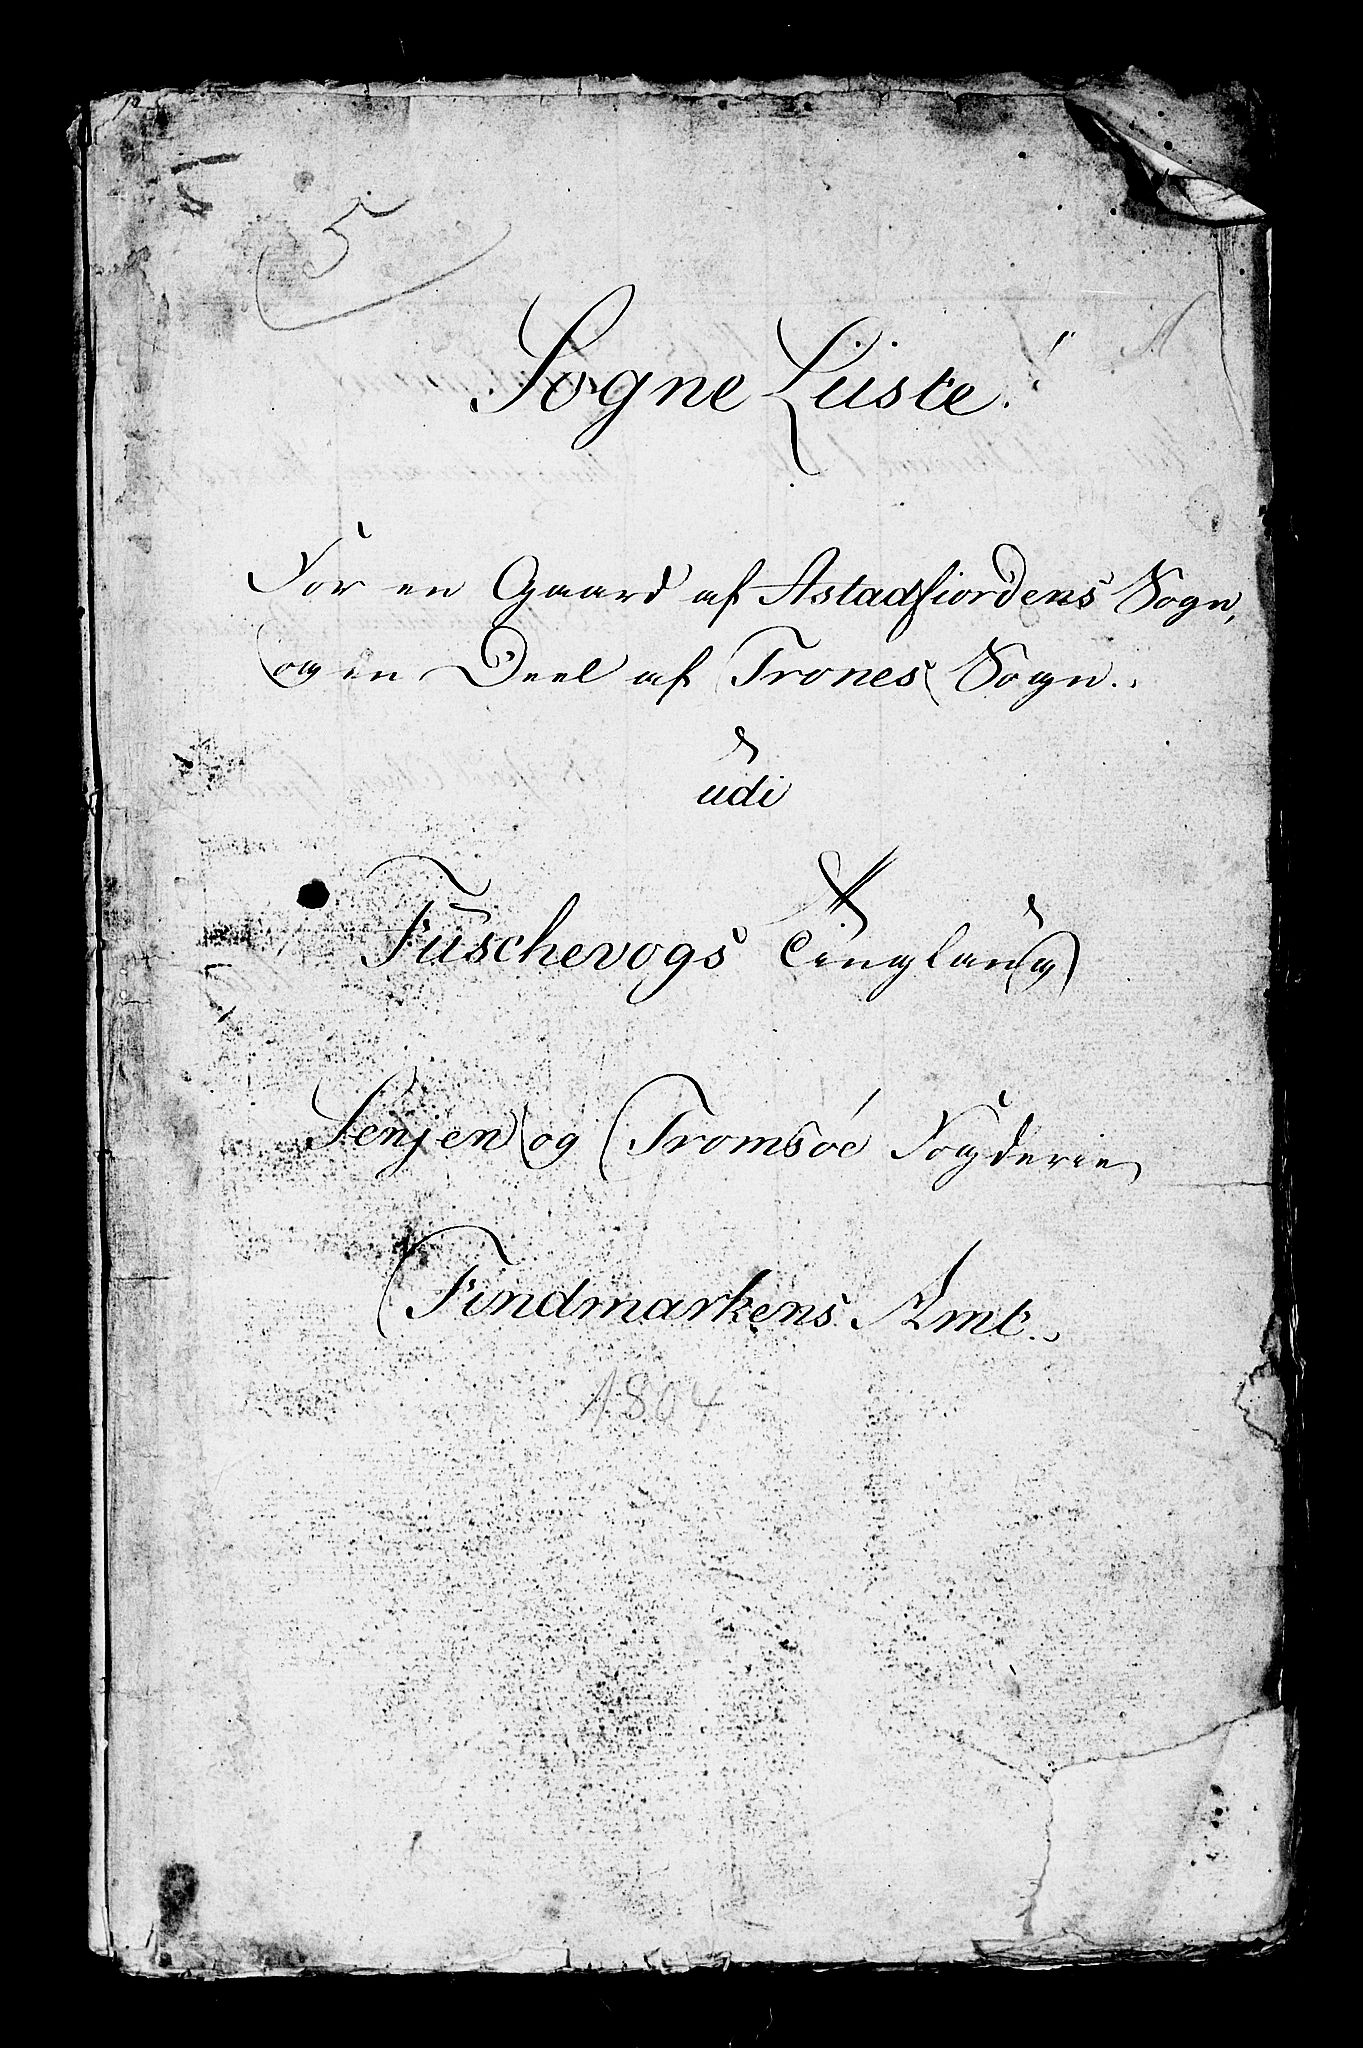 5
Sogne Liiste.
For en Gaard af Astadfiordens Sogn,
og en Deel af Trones Sogn.
udi
Fuschevogs Tinglaug
Senjen og Tromsøe Fogderie
Findmarkens Amt.
1804